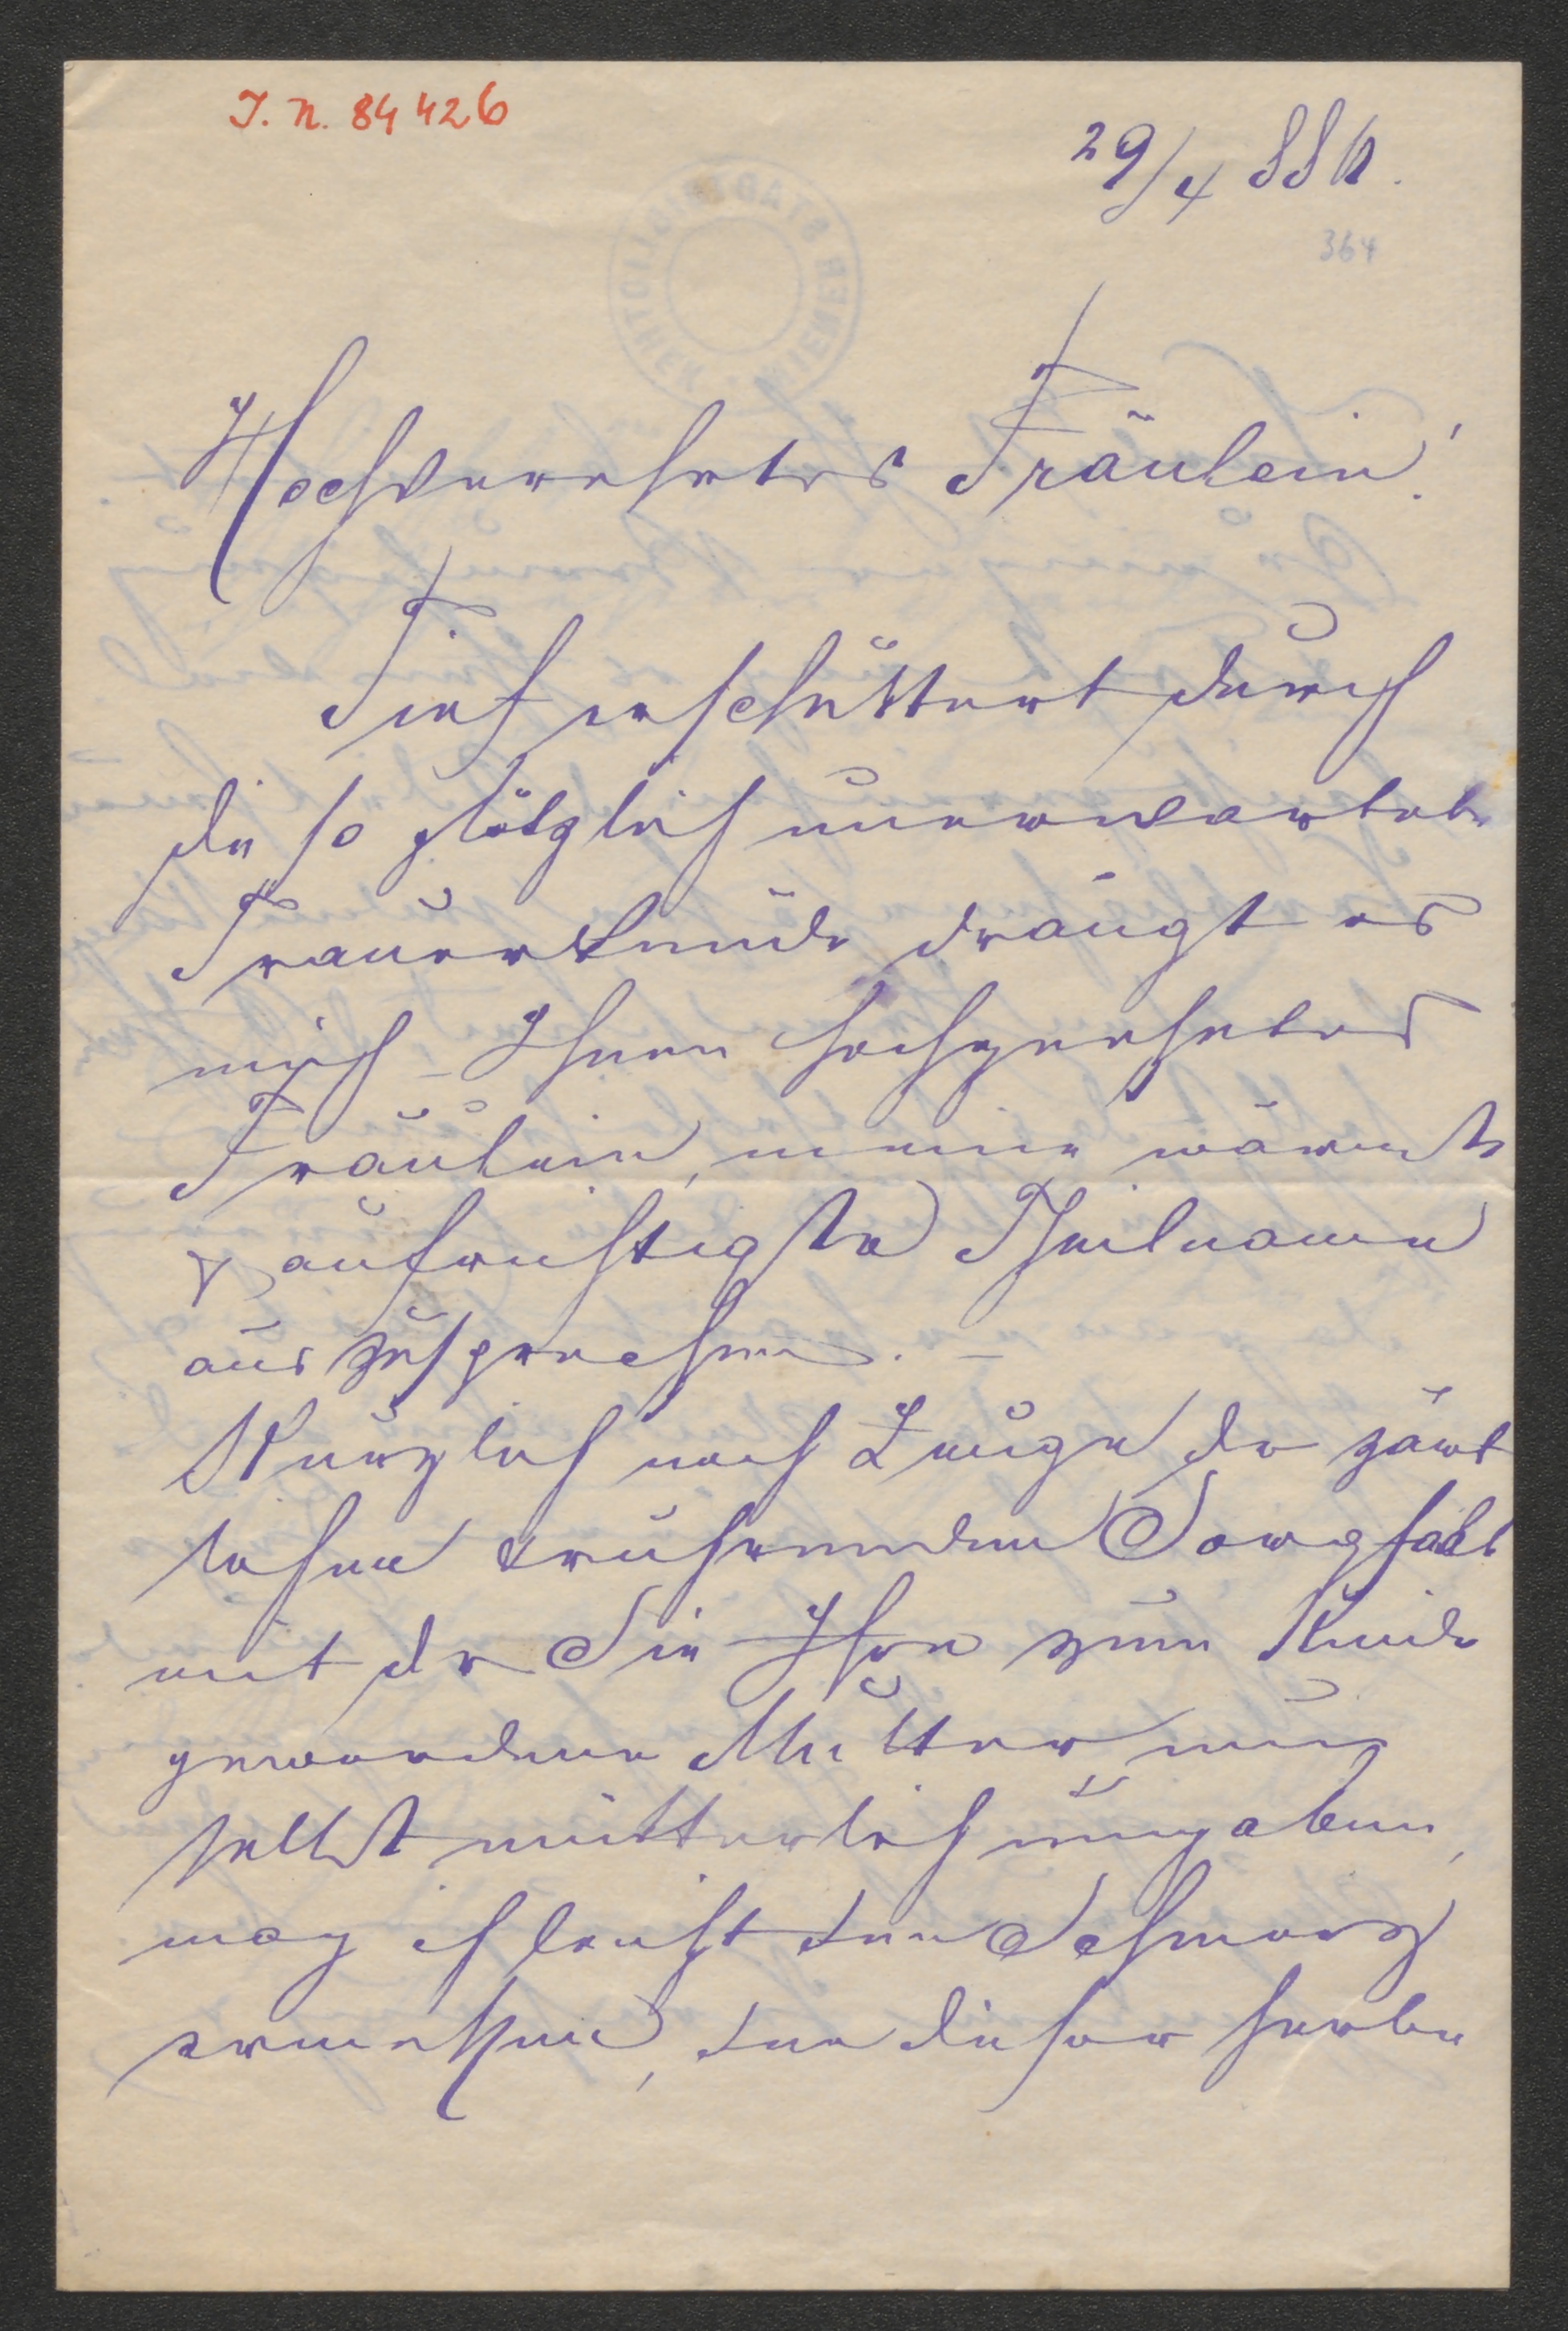 I. N. 84 426
29/4 886.
364
Hochverehrtes Fräulein!
Tief erschüttert durch
die so plötzlich unerwartete
Trauerkunde drängt es
mich Ihnen hochgeehrtes
Fräulein, meine wärmste
& aufrichtigste Theilname
auszusprechen. –
Kürzlich noch Zeuge der zärt
lichen rührenden Sorgfalt
mit der Sie Ihre zum Kinde
gewordene Mutter nun
selbst mütterlich umgaben,
mag ich leicht den Schmerz
ermessen, den dieser herbe